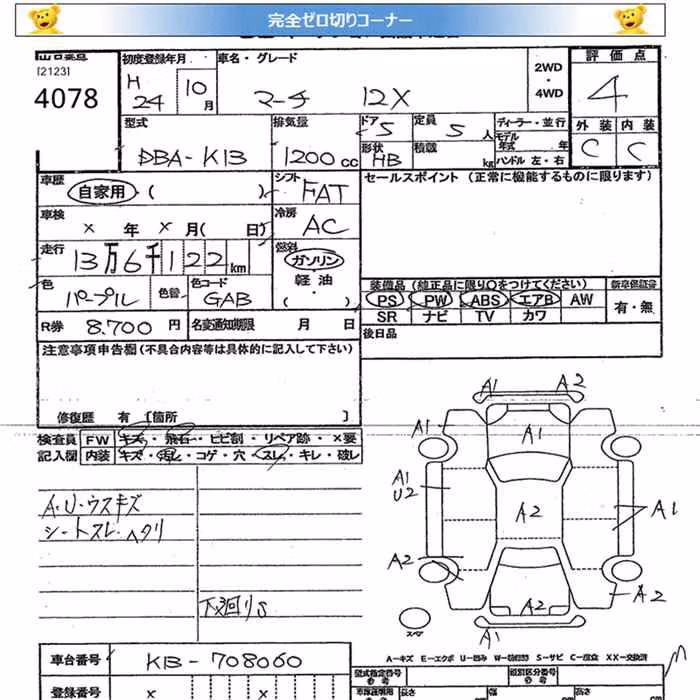 完全ゼロ切りコーナー
[2123]
4078
初度登録年月
H 24 10月
車名・グレード
マーチ 12X
2WD
・
4WD
評価点
4
外装 内装
C C
型式
DBA-K13
排気量
1200cc
ドア 5
形状 HB
定員 5人
積載 kg
ディーラー・並行
モデル年式 年
ハンドル 左・右
車歴
自家用 ( )
シフト
FAT
セールスポイント (正常に機能するものに限ります)
車検
× 年 × 月( 日)
冷房
AC
走行
13万6千122km
燃料
ガソリン
軽油
( )
色
パープル
色替
色コード
GAB
装備品 (純正品に限り○をつけてください)
新車保証書
PS PW ABS エアB AW
SR ナビ TV カワ
有・無
R券 8.700円
名変通知期限 月 日
後日品
注意事項申告欄 (不具合内容等は具体的に記入して下さい)
修復歴 有 [箇所 ]
検査員
記入欄
FW キズ・飛石・ヒビ割・リペア跡・×要
内装 キズ・汚レ・コゲ・穴・スレ・キレ・破レ
A・U・ウスキズ
シートスレ・ヘタリ
下廻りS
A1 A2
A1 A1
A1
U2
A2
A1
A2
A2
A2
A1
スペア
A-キズ E-エクボ U-凹み S-サビ C-腐食 XX-交換済
車台番号
K13-708060
登録番号
× ×
型式指定番号
類別区分番号
長さ 幅 高さ